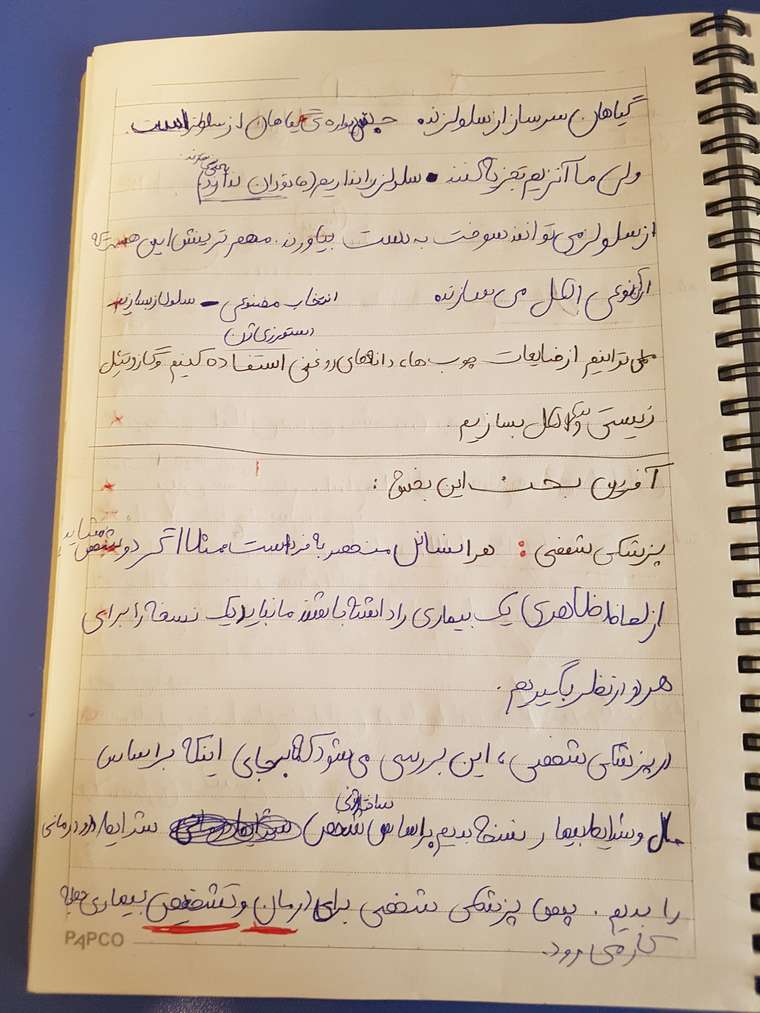 گیاهان سرساز از سلولزند. جنس دیواره‌ی گیاهان از سلولز است.
ولی ما آنزیم تجزیه کننده سلولز را نداریم (ما توران ندارد)
از سلولز می توانند سوخت به دست بیاورند. مهم ترینش این هست که
از آن نوعی الکل می سازند انتخاب مصنوعی - سلولاز سازیم
دستورزی ژن
می توانیم از ضایعات چوب ها، دانه‌های روغنی استفاده کنیم و گازوئیل
زیستی و الکل بسازیم.
آخرین بحث این بخش:
پزشکی شخصی: هر انسان منحصر به فرد است مثلا اگر دو شخص
از لحاظ ظاهری یک بیماری را داشته باشند ما نباید یک نسخه را برای
هر دو در نظر بگیریم.
در پزشکی شخصی، این بررسی می شود که بجای اینکه بر اساس
سال و شرایط بیمار نسخه بدیم بر اساس ژنی شخص شرایط دارو درمانی
را بدیم. پس پزشکی شخصی برای درمان و تشخیص بیماری ها به
کار می رود.
PAPCO